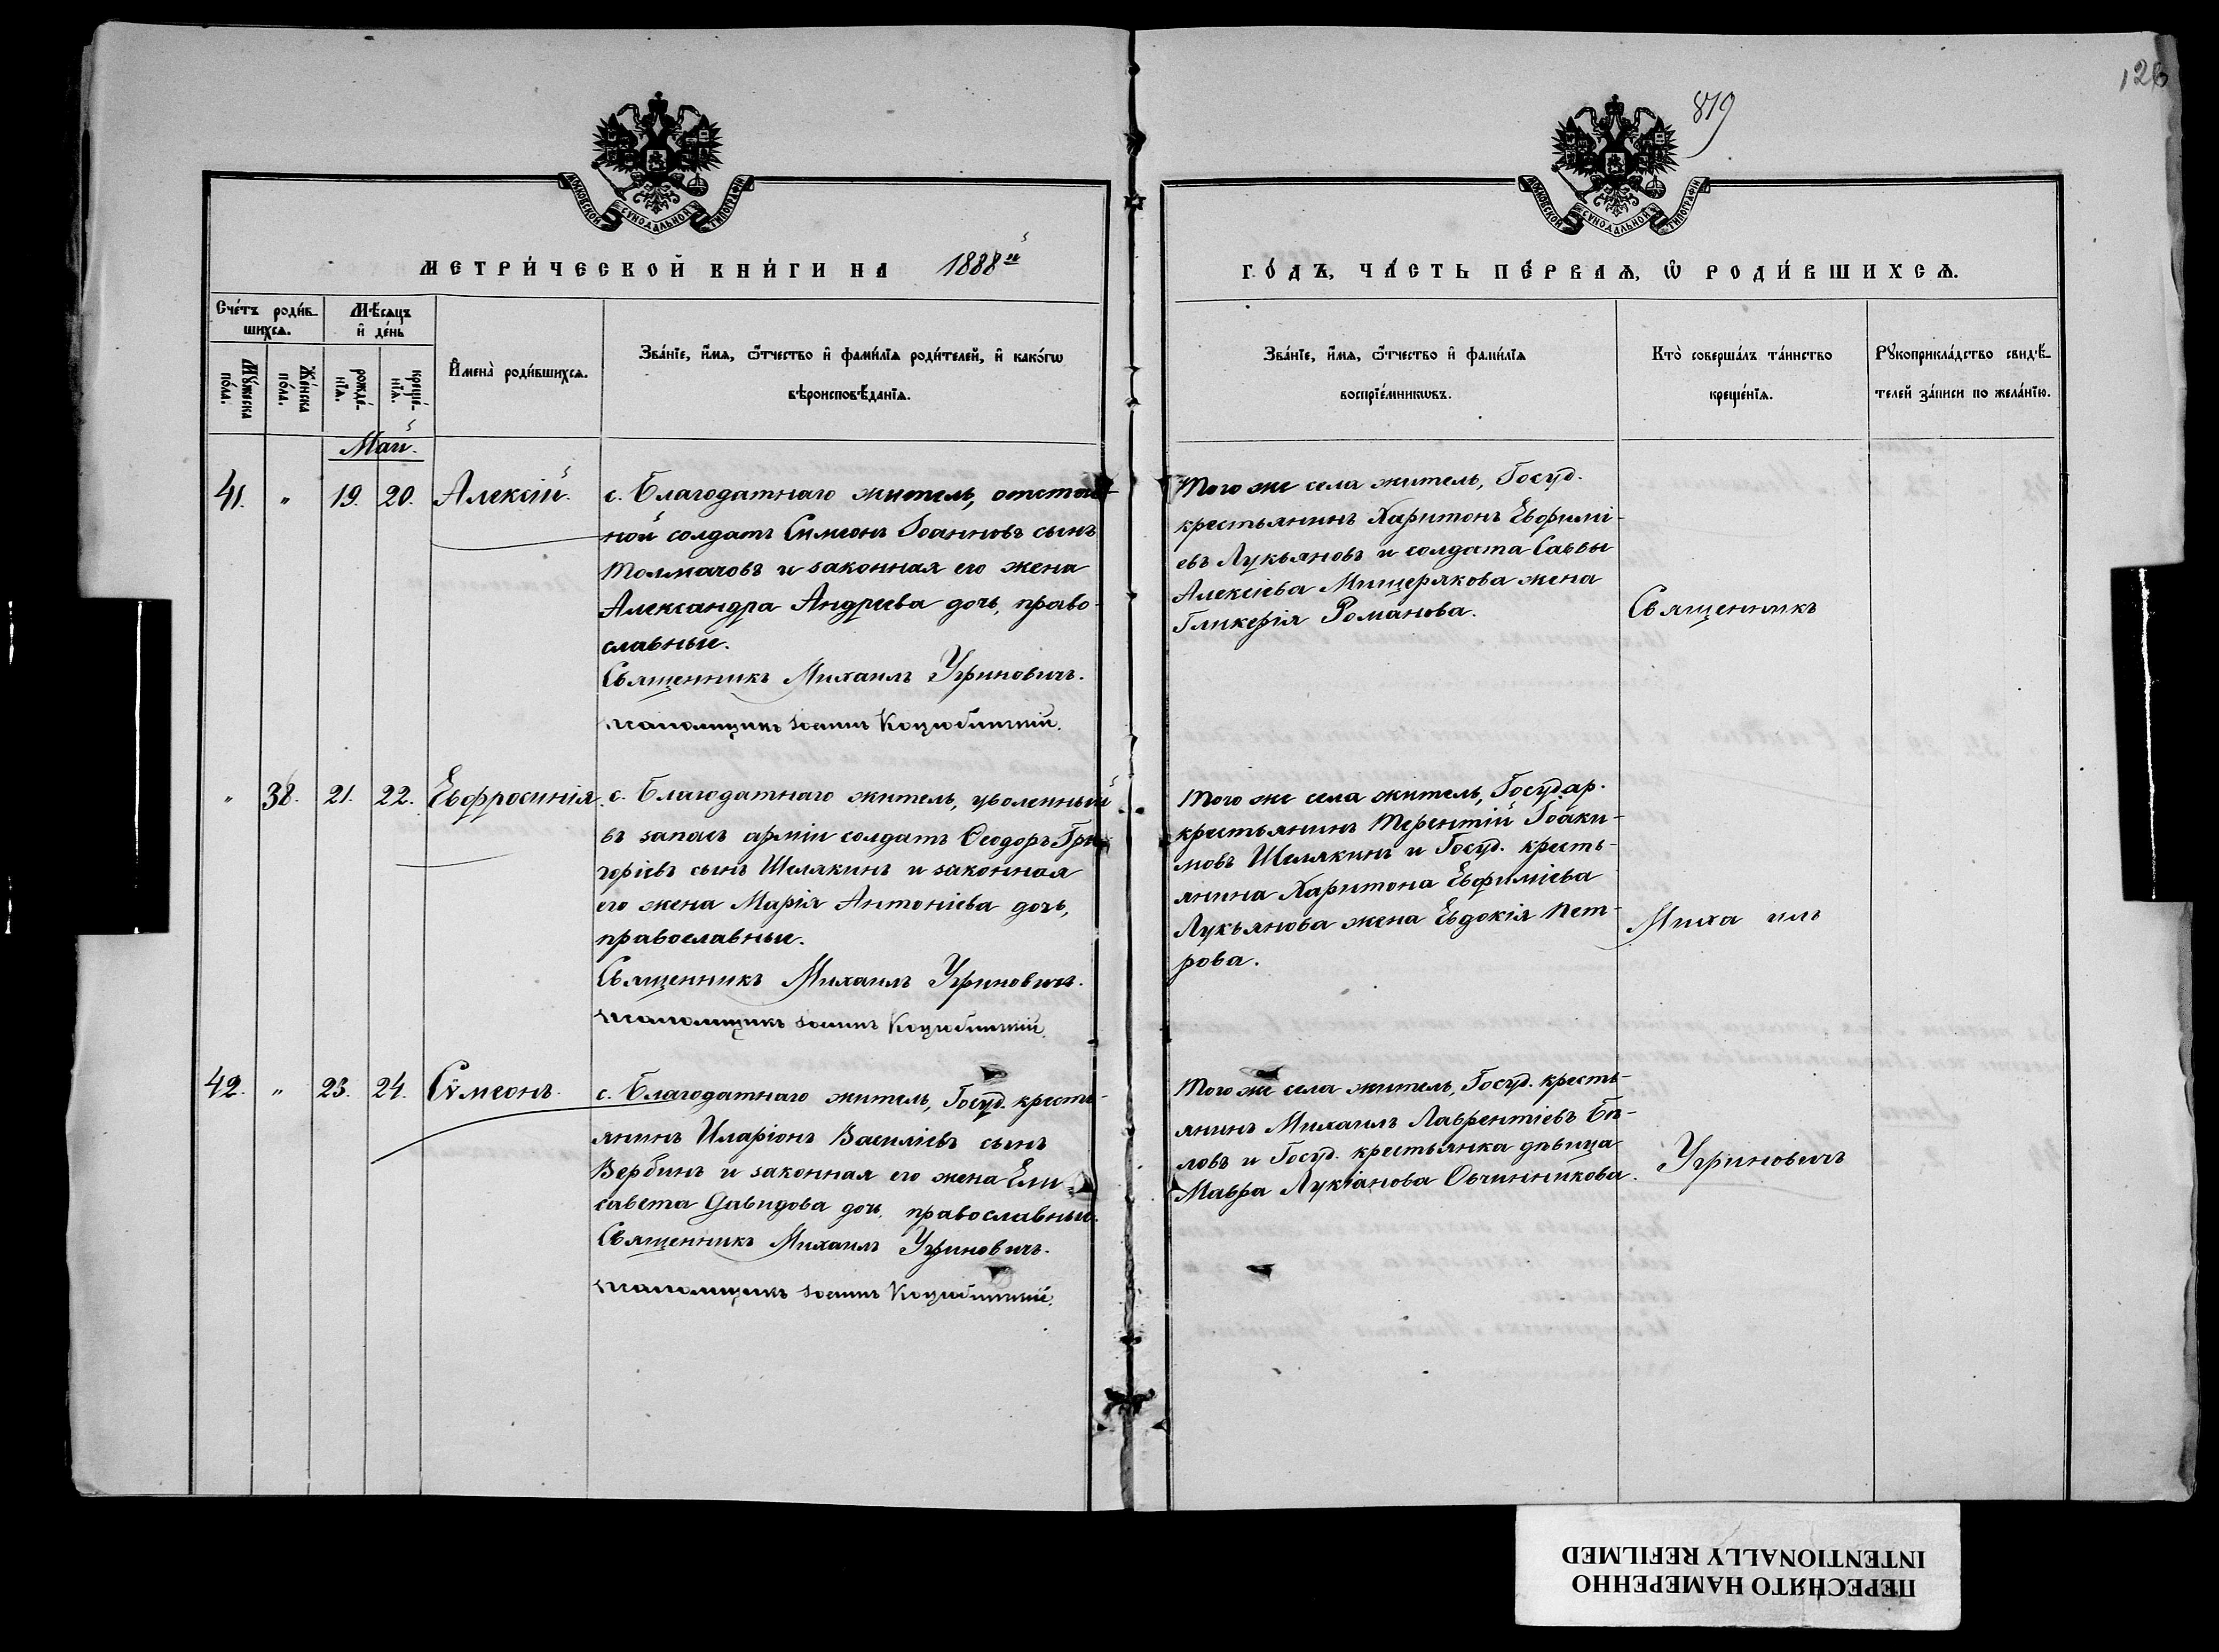 126
819
МОСКОВСКОЙ СѴНОДАЛЬНОЙ ТИПОГРАФІИ
МОСКОВСКОЙ СѴНОДАЛЬНОЙ ТИПОГРАФІИ
МЕТРИ́ЧЕСКОЙ КНИ́ГИ НА 1888й
ГО́ДЪ, ЧА́СТЬ ПЕ́РВАѦ, Ѡ РОДИ́ВШИХСѦ.
Сче́тъ роди́в-
шихсѧ.
Му́жеска по́ла.
Же́нска по́ла.
Мѣ́сѧцъ и҆ де́нь
рожде́-нїѧ.
креще́-нїѧ.
И҆мена̀ роди́вшихсѧ.
Зва́нїе, и҆́мѧ, ѻ҆́тчество и҆ фами́лїѧ роди́телей, и҆ како́гѡ
вѣроисповѣ́данїѧ.
Зва́нїе, и҆́мѧ, ѻ҆́тчество и҆ фами́лїѧ
воспрїе́мникѡвъ.
Кто̀ соверша́лъ та́инство
креще́нїѧ.
Рꙋкоприкла́дство свидѣ́-
телей за́писи по жела́нїю.
Май.
41. " 19. 20. Алексій.
с. Благодатнаго житель, отстав-
ной солдатъ Симеонъ Іоанновъ сынъ
Толмачовъ и законная его жена
Александра Андреева дочь, право-
славные.
Священникъ Михаилъ Угриновичъ.
Псаломщикъ Іоаннъ Коцюбинскій.
Того же села житель, Госуд.
крестьянинъ Харитонъ Евфимі-
евъ Лукьяновъ и солдата Саввы
Алексіева Мищерякова жена
Гликерія Романова.
Священникъ
" 38. 21. 22. Евфросинія.
с. Благодатнаго житель, уволенный
въ запасъ арміи солдатъ Ѳеодоръ Гри-
горіевъ сынъ Шелякинъ и законная
его жена Марія Антоніева дочь,
православные.
Священникъ Михаилъ Угриновичъ.
Псаломщикъ Іоаннъ Коцюбинскій.
Того же села житель, Государ.
крестьянинъ Терентій Іоаки-
мовъ Шелякинъ и Госуд. кресть-
янина Харитона Евфиміева
Лукьянова жена Евдокія Пет-
рова.
Миха илъ
42. " 23. 24. Сѵмеонъ.
с. Благодатнаго житель, Госуд. кресть-
янинъ Иларіонъ Василіевъ сынъ
Вербинъ и законная его жена Ели-
савета Давидова дочь, православные.
Священникъ Михаилъ Угриновичъ.
Псаломщикъ Іоаннъ Коцюбинскій.
Того же села житель, Госуд. кресть-
янинъ Михаилъ Лаврентіевъ Бѣ-
ловъ и Госуд. крестьянка дѣвица
Мавра Лукіанова Овчинникова.
Угриновичъ
ПЕРЕСНЯТО НАМЕРЕННО
INTENTIONALLY REFILMED